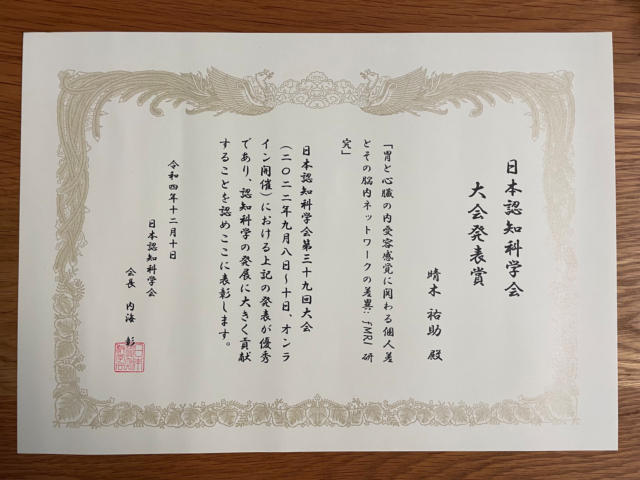 日本認知科学会
大会発表賞
晴木 祐助 殿
「胃と心臓の内受容感覚に関わる個人差
とその脳内ネットワークの差異: fMRI 研
究」
日本認知科学会第三十九回大会
(二〇二二年九月八日〜十日、オンラ
イン開催)における上記の発表が優秀
であり、認知科学の発展に大きく貢献
することを認めここに表彰します。
令和四年十二月十日
日本認知科学会
会長 内海 彰